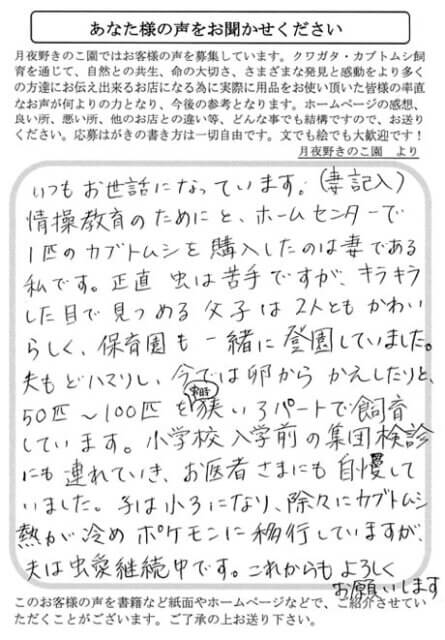 あなた様の声をお聞かせください
月夜野きのこ園ではお客様の声を募集しています。クワガタ・カブトムシ飼
育を通じて、自然との共生、命の大切さ、さまざまな発見と感動をより多く
の方達にお伝え出来るお店になる為に実際に用品をお使い頂いた皆様の率直
なお声が何よりの力となり、今後の参考となります。ホームページの感想、
良い所、悪い所、他のお店との違い等、どんな事でも結構ですので、お送り
ください。応募はがきの書き方は一切自由です。文でも絵でも大歓迎です！
月夜野きのこ園　より
いつもお世話になっています。(妻記入)
情操教育のためにと、ホームセンターで
1匹のカブトムシを購入したのは妻である
私です。正直 虫は苦手ですが、キラキラ
した目で見つめる父子は2人ともかわい
らしく、保育園も一緒に登園していました。
夫もどハマりし、今では卵からかえしたりと、
50匹～100匹を狭いアパートで飼育
しています。小学校入学前の集団検診
にも連れていき、お医者さまにも自慢して
いました。子は小3になり、除々にカブトムシ
熱が冷めポケモンに移行していますが、
夫は虫愛継続中です。これからもよろしく
お願いします
このお客様の声を書籍など紙面やホームページなどで、ご紹介させてい
ただくことがございます。ご了承の上お送り下さい。